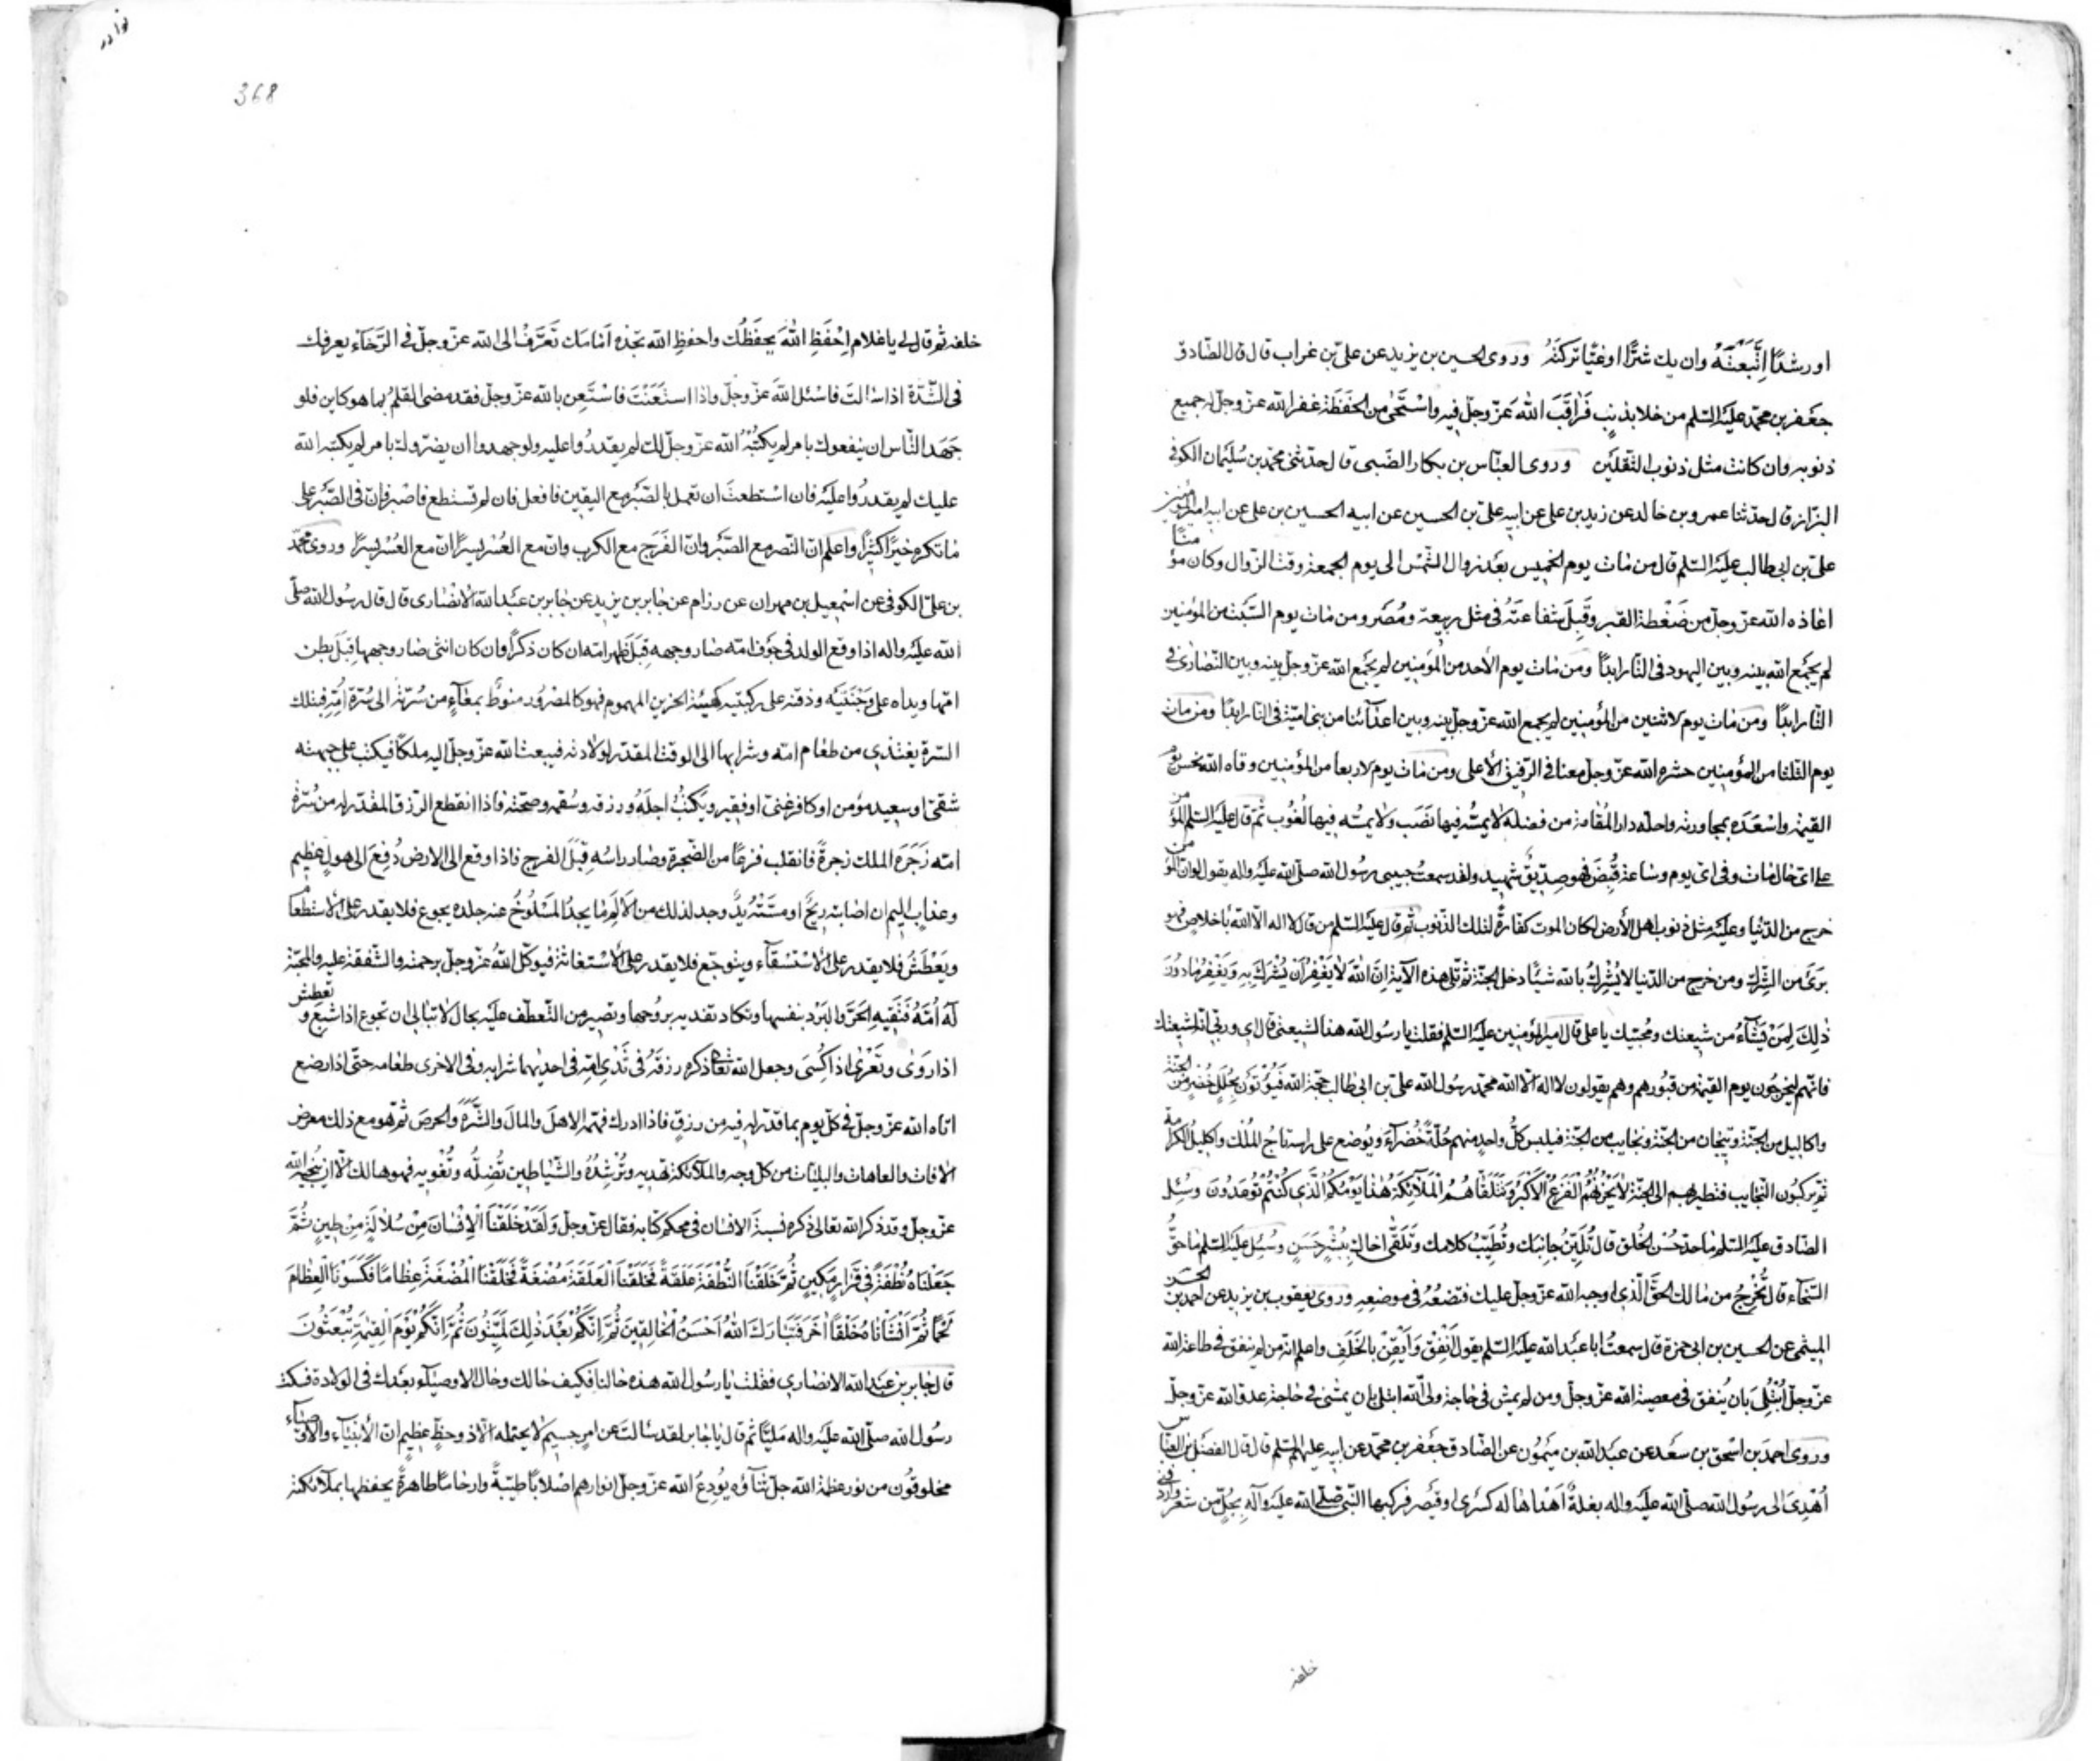 او رشدًا اِتَّبَعْتَهُ وان يك شرًّا اوغيًّا تركتَهُ وروى الحسين بن يزيد عن علىّ بن غراب قال قال الصّادق
جعفر بن محمّد عليه السّلم من خلا بذنبٍ فَراقَبَ اللّهَ عزّوجلّ فيه واسْتَحْيٰى من الحَفَظَة غفر اللّه عزّوجلّ له جميع
ذنوبه وان كانت مثل ذنوب الثّقلين وروى العبّاس بن بكار الضّبى قال حدثنى محمّد بن سُلَيْمان الكوفى
البزّاز قال حدثنا عمرو بن خالد عن زيد بن على عن ابيه علىّ بن الحسين عن ابيه الحسين بن على عن ابيه امير المؤمنين
علىّ بن ابى طالب عليه السّلم قال من مات يوم الخميس بعد زوال الشّمس الى يوم الجمعة وقت الزّوال وكان مؤمنًا
اعاذه اللّه عزّوجلّ من ضَغْطة القبر وقَبِلَ شفاعَتَهُ فى مثل ربيعة ومُضَر ومن مات يوم السّبت من المؤمنين
لم يجمع اللّه بينه وبين اليهود فى النّار ابدًا ومن مات يوم الأحد من المؤمنين لم يجمع اللّه عزّوجلّ بينه وبين النّصارى فى
النّار ابدًا ومن مات يوم لاثنين من المؤمنين لم يجمع اللّه عزّوجلّ بينه وبين اعدآئنا من بنى اميّة فى النّار ابدًا ومن مات
يوم الثلثا من المؤمنين حشره اللّه عزّوجلّ معنا فى الرّفيق الأعلى ومن مات يوم لاربعا من المؤمنين وقاه اللّه نحس يوم
القيمة واسْعَدَه بمجاورته واحلّه دار المُقامة من فضله لا يمسّه فيها نصَب ولا يمسّه فيها لُغُوب ثمّ قال عليه السّلم المؤمن
على اىّ حال مات وفى اىّ يوم وساعة قُبِضَ فهو صِدّيق شهيد ولقد سمعتُ حبيبى رسُول اللّه صلّى اللّه عليه واله يقول لو انّ المؤمن
خرج من الدّنيا وعليه مثل ذنوب اهل الأرض لكان الموت كفّارةً لتلك الذّنوب ثمّ قال عليه السّلم من قال لا اله الّا اللّه باخلاصٍ فهو
بَرَىَ من الشِّرك ومن خرج من الدّنيا لا يُشْرِكُ باللّه شيئًا دخل الجنّة ثمّ تلى هذه الآية اِنَّ اللّهَ لا يَغْفِرُ اَنْ يُشْرَكَ بِهِ وَيَغْفِرُ مٰا دُونَ
ذٰلِكَ لِمَنْ يَشٰآءُ من شيعتك ومُحبّيك يا على قال امير المؤمنين عليه السّلم فقلت يا رسُول اللّه هذا لشيعتى قال اى وربّى انّه لشيعتك
فانّهم ليخرجُون يوم القيمة من قبُورهم وهم يقولون لا اله الّا اللّه محمّد رسُول اللّه علىّ بن ابى طالب حجّة اللّه فَيُؤْتَوْنَ بحُلَلٍ خُضْرٍ من الجنّة
واكاليل من الجنّة وتيجان من الجنّة ونجايب من الجنّة فيلبس كلّ واحدٍ منهم حُلّةً خُضرآءَ ويُوضع على راسه تاجُ المُلك واكليلُ الكرامة
ثمّ يركبُون النّجايب فتطير بهم الى الجنّة لا يَحْزُنُهُمُ الفَزَعُ الْاَكْبَرُ وَتَتَلَقّٰاهُمُ الْمَلآئِكَةُ هٰذٰا يَوْمُكُمُ الَّذى كُنْتُمْ تُوعَدُونَ وسُئِل
الصّادق عليه السّلم ما حدّ حُسْن الخُلق قال تُلَيِّنُ جانِبَك وتُطَيّبُ كلامك وتَلْقٰى اخاك بِبِشْرٍ حَسَنٍ وسُئِل عليه السّلم ما حدُّ
السّخآء قال تُخْرِجُ من مالك الحقَّ الّذى اوجبه اللّه عزّوجلّ عليك فتضعُهُ فى موضعه وروى يعقوب بن يزيد عن احمد بن الحسن
الميثمى عن الحسين بن ابى حمزة قال سمعتُ ابا عبد اللّه عليه السّلم يقول اَنْفِقْ وَاَيْقِنْ بالخَلَفِ واعلم انّه من لم ينفق فى طاعة اللّه
عزّوجلّ ابْتُلِىَ بان يُنفق فى معصية اللّه عزّوجلّ ومن لم يمش فى حاجة ولىّ اللّه ابتلى بان يمشى فى حاجة عدوّ اللّه عزّوجلّ
وروى احمد بن اسحق بن سَعْد عن عبد اللّه بن ميمُون عن الصّادق جعفر بن محمّد عن ابيه عليهما السّلم قال قال الفضل بن العبّاس
اُهْدِىَ الى رسُول اللّه صلّى اللّه عليه واله بغلةٌ اَهْداها له كسرى او قيصر فركبها النّبىّ صلّى اللّه عليه وآله بِجُلٍّ من شعر واردفنى
خلفه
نوادر
368
خلفه ثمّ قال لى يا غلام اِحْفَظِ اللّهَ يحفَظْك واحفظِ اللّه تجده اَمٰامَك تَعَرَّفْ الى اللّه عزّوجلّ فى الرَّخآء يعرفك
فى الشّدّة اذا سالتَ فاسْئل اللّهَ عزّوجلّ واذا استَعَنْتَ فاسْتَعِن باللّه عزّوجلّ فقد مضى القلمُ بما هو كاين فلو
جَهَد النّاس ان ينفعوك بامر لم يكتُبْهُ اللّه عزّوجلّ لك لم يقدرُوا عليه ولو جهدوا ان يضرّوك بامر لم يكتبه اللّه
عليك لم يقدرُوا عليه فان اسْتطعتَ ان تعمل بالصّبر مع اليقين فافعل فان لم تستطع فاصْبر فانّ فى الصّبر على
ما تكره خيرًا كثيرًا واعلم انّ النّصر مع الصّبر وانّ الفَرَج مع الكرب وانّ مع العُسْر يسرًا انّ مع العُسْر يسرًا وروى محمّد
بن علىّ الكوفى عن اسْمعيل بن مهران عن مرازم عن جابر بن يزيد عن جابر بن عبد اللّه الأنصارى قال قال رسُول اللّه صلّى
اللّه عليه واله اذا وقع الولد فى جوف امّه صار وجهه قِبَلَ ظهر امّه ان كان ذكرًا وان كان انثى صار وجهها قِبَلَ بطن
امّها ويداه على وَجْنَتَيْه وذقنه على ركبتيه كهيئة الحزين المهموم فهو كالمصْرُور منوطٌ بمعآءٍ من سُرّته الى سُرّة اُمّه فبتلك
السّرة يغتذى من طعام امّه وشرابها الى الوقت المقدّر لولادته فيبعث اللّه عزّوجلّ اليه ملكًا فيكتب على جبهته
شقىّ او سعيد مؤمن او كافر غنىّ او فقير ويكتبُ اجلَهُ ورزقه وسُقمه وصحّته فاذا انقطع الرّزق المقدّر له من سُرّة
امّه زَجَرَه الملك زجرةً فانقلب فزعًا من الزّجرة وصار راسُه قِبَلَ الفرج فاذا وقع الى الارض دُفِعَ الى هولٍ عظيم
وعذابٍ اليم ان اصابته ريحٌ او مسّتْهُ يدٌ وجد لذلك من الألَمِ ما يجدُ المَسْلُوخُ عنه جلده يجوع فلا يقدر على الأستطعام
ويَعْطَشُ فلا يقدر على الأسْتسْقآء ويتوجّع فلا يقدر على الأسْتغاثة فيوكّل اللّهُ عزّوجلّ برحمته والشّفقة عليه والمحبّة
لَه اُمَّهُ فَتَقيهِ الحَرَّ والبَرْد بنفسها وتكاد تفديه بروُحها وتصير من التّعطّف عليه بحالٍ لا تبالى ان تجوع اذا شبع وتعطش
اذا رَوٰى وتَعْرٰى اذا كُسِىَ وجعل اللّه تعالى ذكره رزقَهُ فى ثَدْى امّه فى احديهما شرابه وفى الاخرى طعامه حتّى اذا رضع
اتاه اللّه عزّوجلّ فى كلّ يوم بما قدّر له فيه من رزقٍ فاذا ادرك فهمّه الاهلَ والمالَ والشَّرَهَ والحرصَ ثمّ هو مع ذلك معرض
الافات والعاهات والبليّات من كلّ وجه والملآئكة تهديه وتُرْشِدُهُ والشّياطين تُضِلّهُ وتُغْويه فهو هالك الّا ان يُنْجيه اللّه
عزّوجلّ وقد ذكر اللّه تعالى ذكره نسبةَ الانسٰان فى محكم كتٰابه فقال عزّوجلّ وَلَقَدْ خَلَقْنَا الْاِنْسٰانَ مِنْ سُلٰالَةٍ مِنْ طٖينٍ ثُمَّ
جَعَلْنٰاهُ نُطْفَةً فٖى قَرٰارٍ مَكٖينٍ ثُمَّ خَلَقْنَا النُّطْفَةَ عَلَقَةً فَخَلَقْنَا الْعَلَقَةَ مُضْغَةً فَخَلَقْنَا الْمُضْغَةَ عِظٰامًا فَكَسَوْنَا الْعِظٰامَ
لَحْمًا ثُمَّ اَنْشَاْنٰاهُ خَلْقًا اٰخَرَ فَتَبٰارَكَ اللّهُ اَحْسَنُ الْخٰالِقٖينَ ثُمَّ اِنَّكُمْ بَعْدَ ذٰلِكَ لَمَيِّتُونَ ثُمَّ اِنَّكُمْ يَوْمَ الْقِيٰمَةِ تُبْعَثُونَ
قال جابر بن عبد اللّه الانصارى فقلت يا رسُول اللّه هذه حالنا فكيف حالك وحال الاوصيآء بعدك فى الولادة فسكت
رسُول اللّه صلّى اللّه عليه واله مليًّا ثمّ قال يا جابر لقد سئالتَ عن امرٍ جسيمٍ لا يحتمله الّا ذو حظٍّ عظيمٍ انّ الأنبيآء والأوصيآء
مخلوقُون من نور عظمة اللّه جلّ ثنآؤه يُودِعُ اللّه عزّوجلّ انوارهم اصْلابًا طيّبةً وارحامًا طاهرةً يحفظها بملآئكته